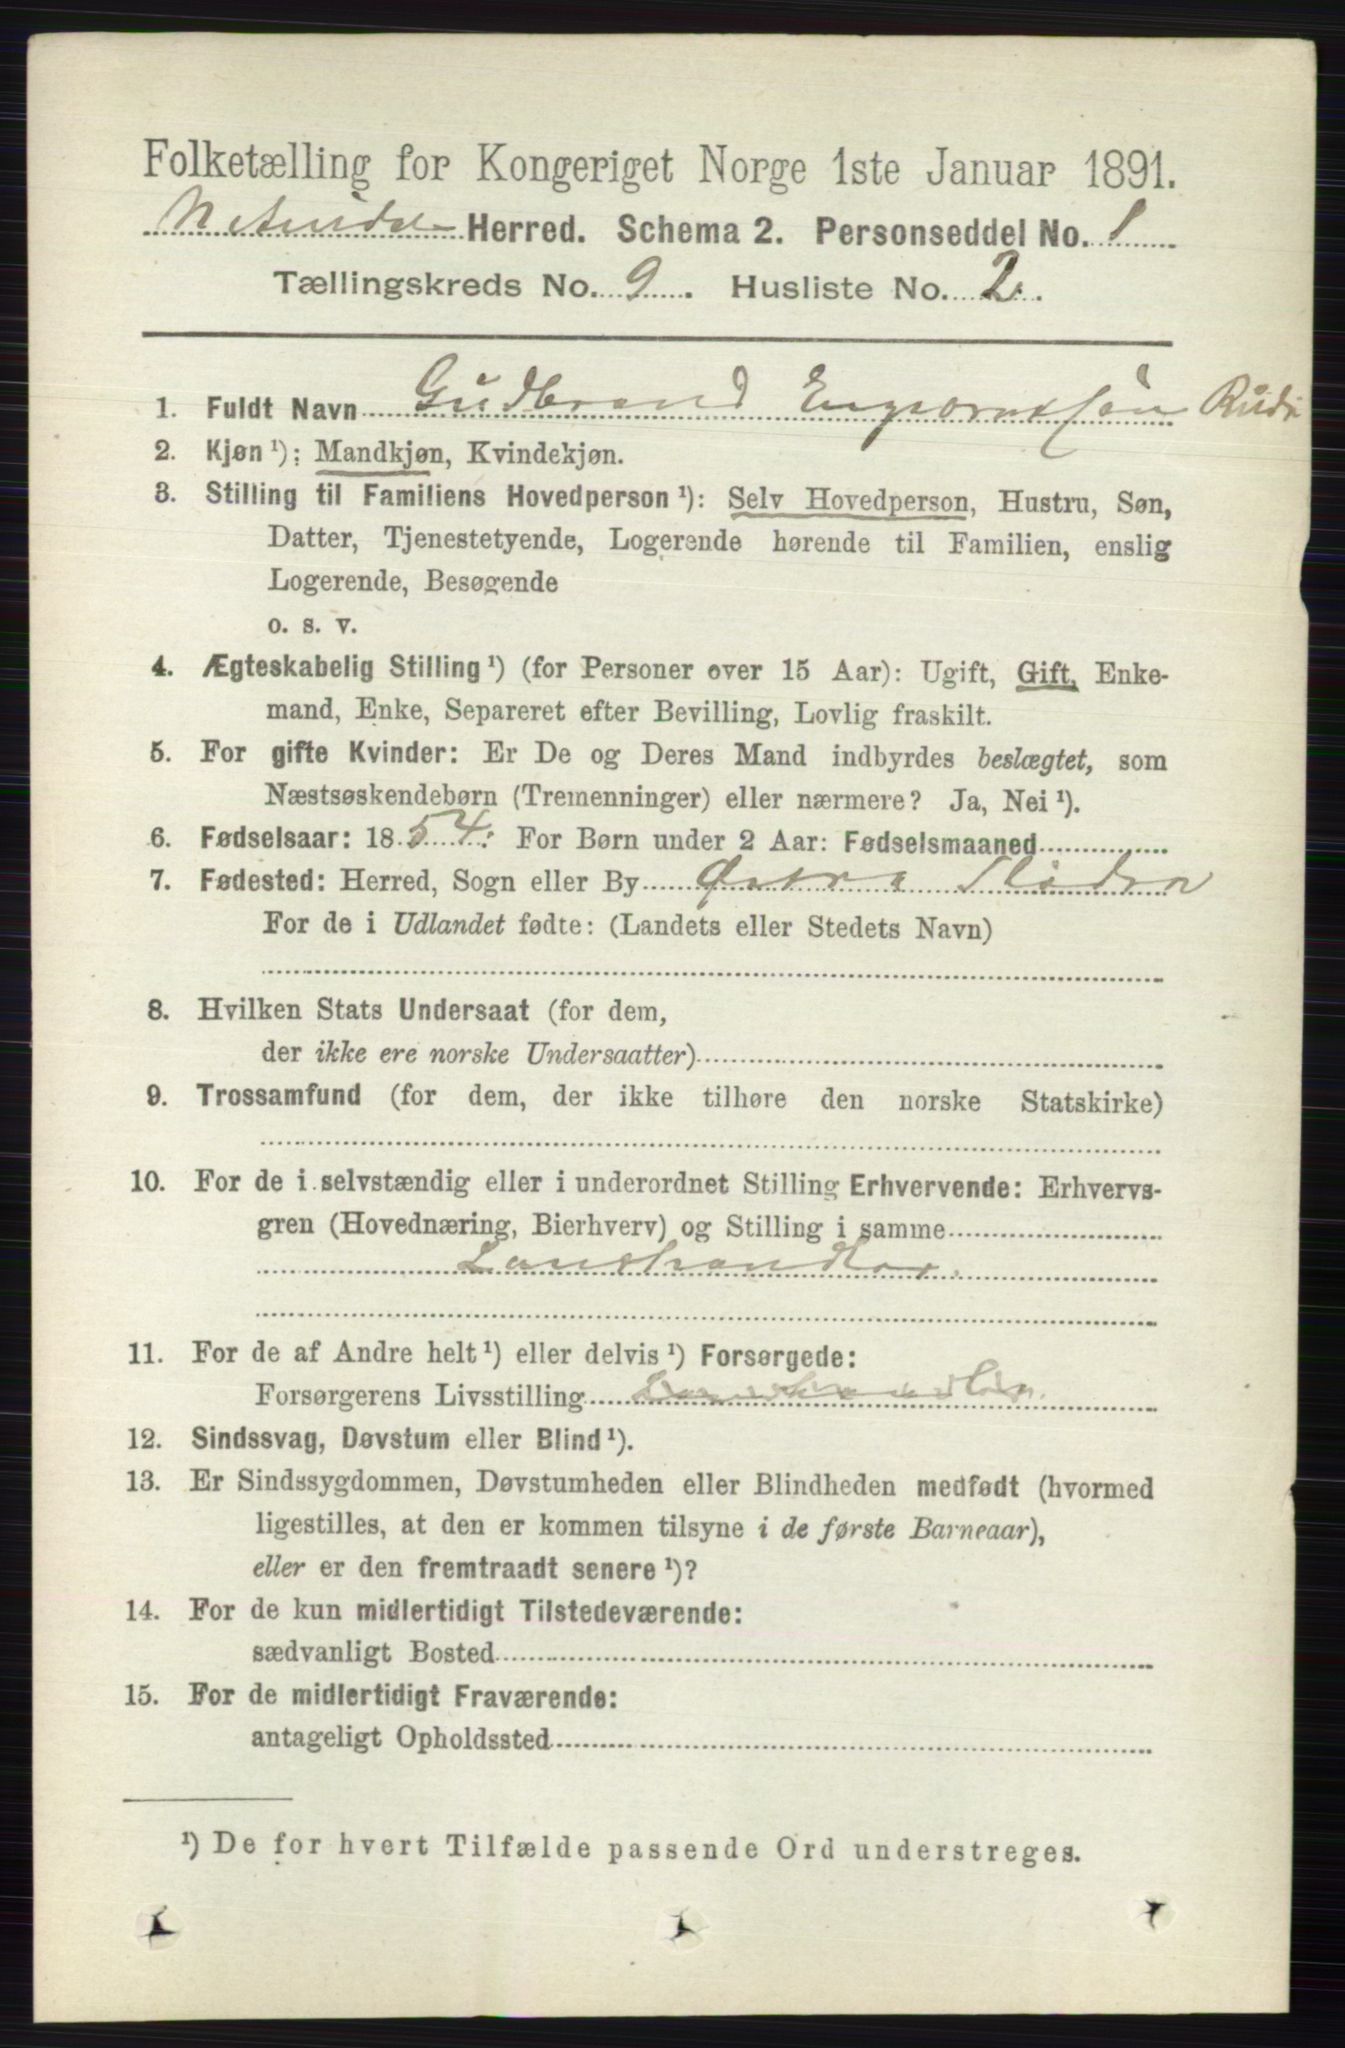 Folketælling for Kongeriget Norge 1ste Januar 1891.
Herred. Schema 2. Personseddel No. 1
Tællingskreds No. 9. Husliste No. 2.
1. Fuldt Navn Gudbrand
2. Kjøn ¹): Mandkjøn, Kvindekjøn.
3. Stilling til Familiens Hovedperson ¹): Selv Hovedperson, Hustru, Søn,
Datter, Tjenestetyende, Logerende hørende til Familien, enslig
Logerende, Besøgende
o. s. v.
4. Ægteskabelig Stilling ¹) (for Personer over 15 Aar): Ugift, Gift, Enke-
mand, Enke, Separeret efter Bevilling, Lovlig fraskilt.
5. For gifte Kvinder: Er De og Deres Mand indbyrdes beslægtet, som
Næstsøskendebørn (Tremenninger) eller nærmere? Ja, Nei ¹).
6. Fødselsaar: 1854. For Børn under 2 Aar: Fødselsmaaned
7. Fødested: Herred, Sogn eller By Østre Slidre
For de i Udlandet fødte: (Landets eller Stedets Navn)
8. Hvilken Stats Undersaat (for dem,
der ikke ere norske Undersaatter)
9. Trossamfund (for dem, der ikke tilhøre den norske Statskirke)
10. For de i selvstændig eller i underordnet Stilling Erhvervende: Erhvervs-
gren (Hovednæring, Bierhverv) og Stilling i samme
Lanshandler.
11. For de af Andre helt ¹) eller delvis ¹) Forsørgede:
Forsørgerens Livsstilling
12. Sindssvag, Døvstum eller Blind ¹).
13. Er Sindssygdommen, Døvstumheden eller Blindheden medfødt (hvormed
ligestilles, at den er kommen tilsyne i de første Barneaar),
eller er den fremtraadt senere ¹)?
14. For de kun midlertidigt Tilstedeværende:
sædvanligt Bosted
15. For de midlertidigt Fraværende:
antageligt Opholdssted
¹) De for hvert Tilfælde passende Ord understreges.